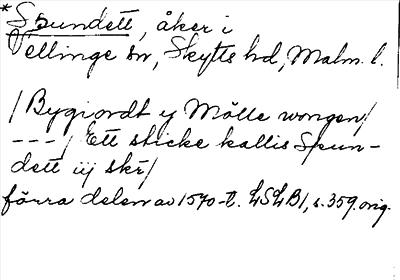 *Spundett, åker i
Vellinge sn, Skytts hd, Malm. l.
/Bygiordt y Mölle wongen/
---/ Ett sticke kallis Spun-
dett iij skr/
förra delen av 1570-t. LSLB1, s. 359 orig.